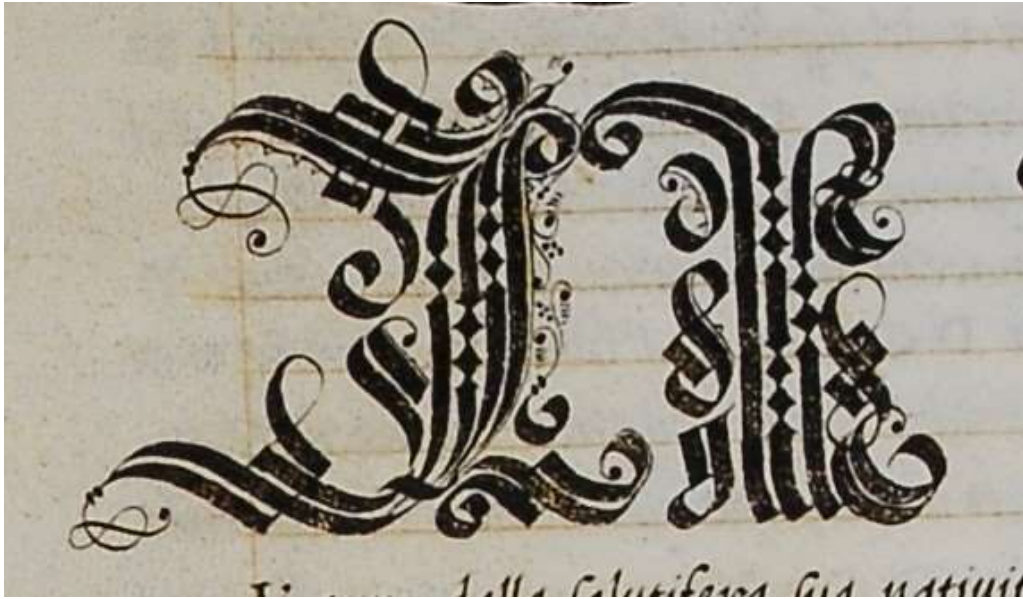 IN
della salutifera sua nativi